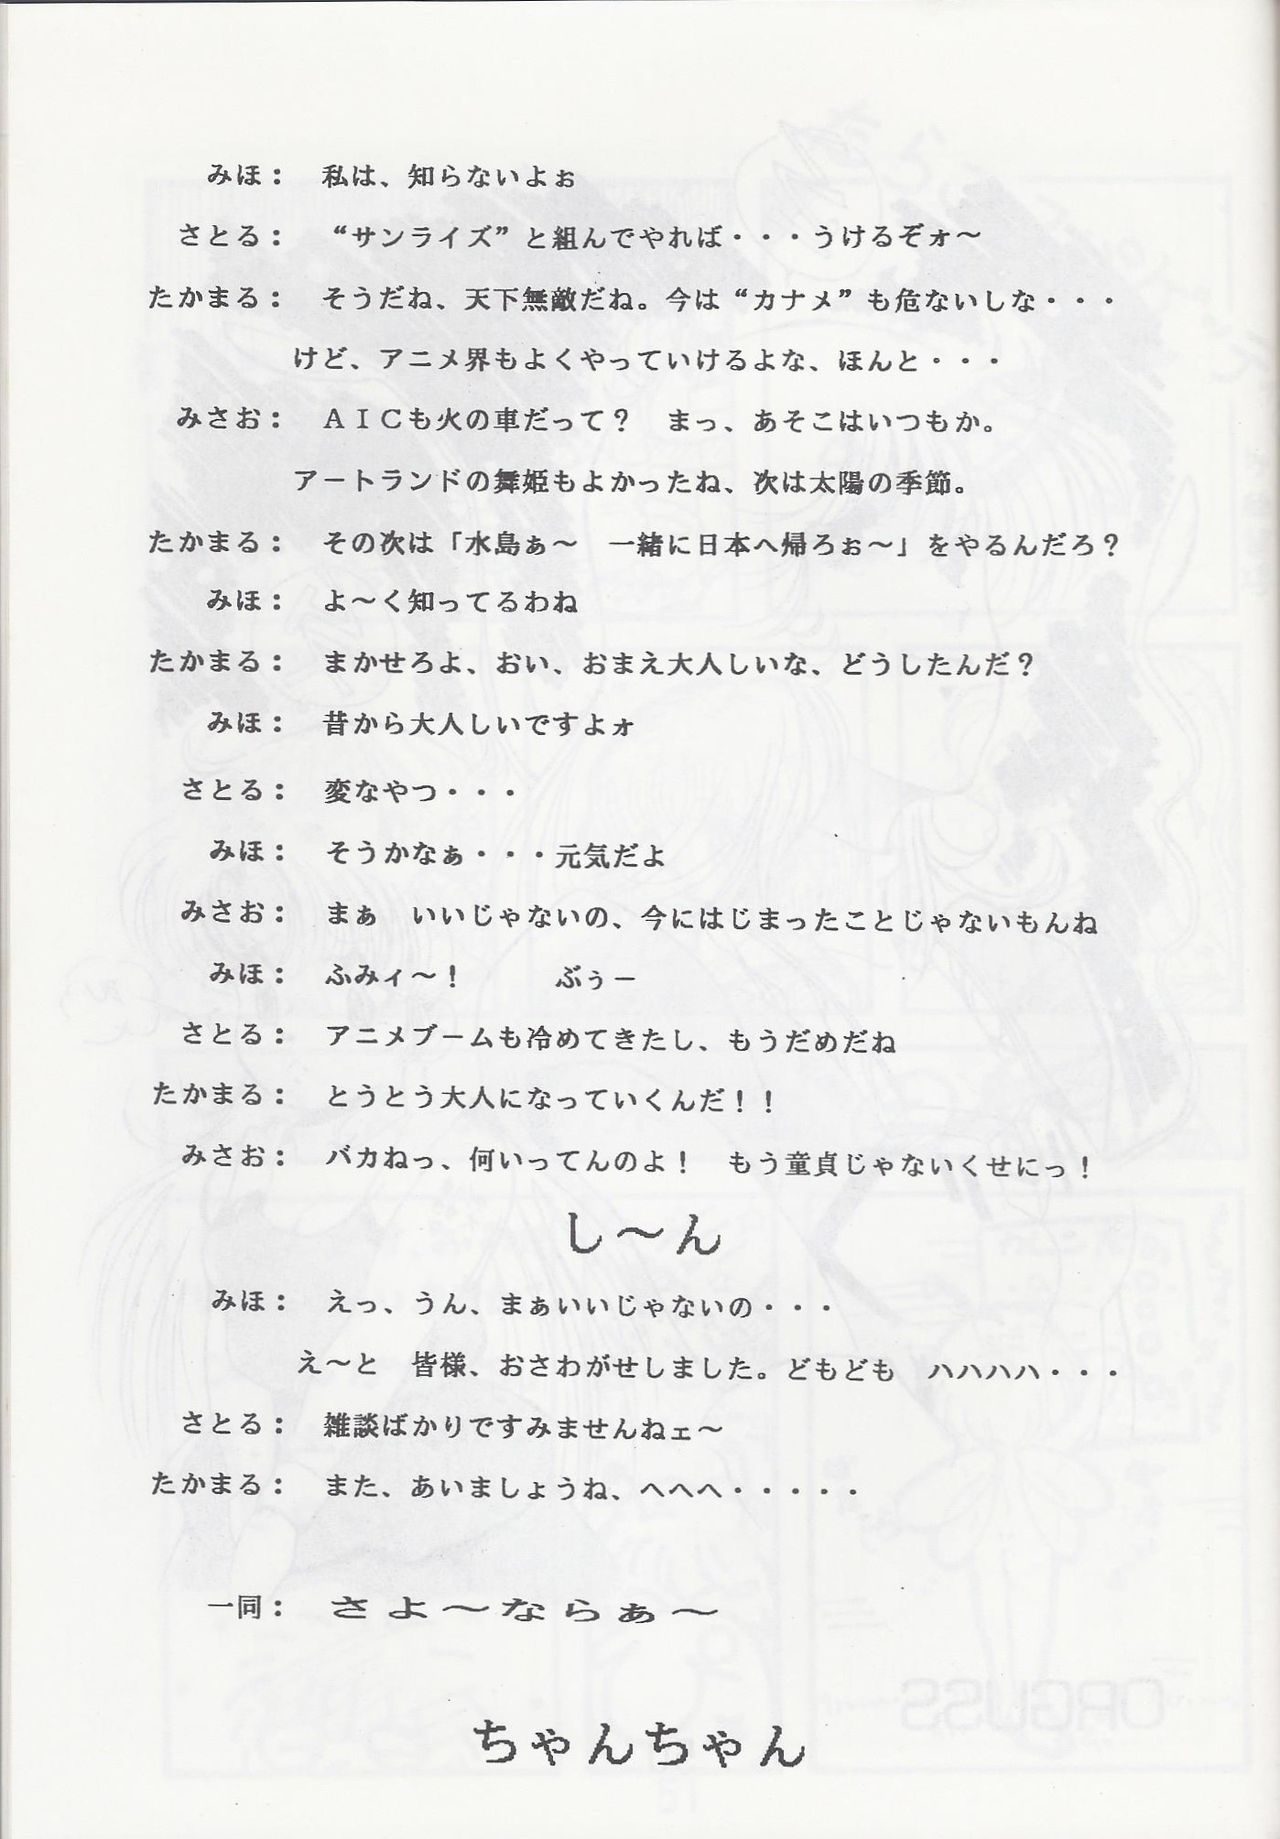 みほ： 私は、知らないよぉ
さとる： “サンライズ”と組んでやれば・・・うけるぞォ～
たかまる： そうだね、天下無敵だね。今は“カナメ”も危ないしな・・・
けど、アニメ界もよくやっていけるよな、ほんと・・・
みさお： ＡＩＣも火の車だって？　まっ、あそこはいつもか。
アートランドの舞姫もよかったね、次は太陽の季節。
たかまる： その次は「水島ぁ～　一緒に日本へ帰ろぉ～」をやるんだろ？
みほ： よ～く知ってるわね
たかまる： まかせろよ、おい、おまえ大人しいな、どうしたんだ？
みほ： 昔から大人しいですよォ
さとる： 変なやつ・・・
みほ： そうかなぁ・・・元気だよ
みさお： まぁ　いいじゃないの、今にはじまったことじゃないもんね
みほ： ふみィ～！　　　ぶぅー
さとる： アニメブームも冷めてきたし、もうだめだね
たかまる： とうとう大人になっていくんだ！！
みさお： バカねっ、何いってんのよ！　もう童貞じゃないくせにっ！
し～ん
みほ： えっ、うん、まぁいいじゃないの・・・
え～と　皆様、おさわがせしました。どもども　ハハハハ・・・
さとる： 雑談ばかりですみませんねェ～
たかまる： また、あいましょうね、へへへ・・・・・
一同： さよ～ならぁ～
ちゃんちゃん
ORGUSS